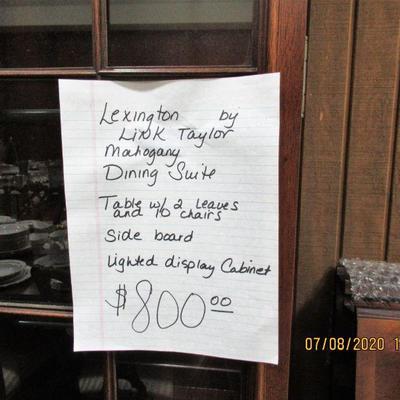 Lexington by
Link Taylor
Mahogany
Dining Suite
Table w/ 2 leaves
and 10 chairs
Side board
Lighted display Cabinet
$800.00
07/08/2020 1